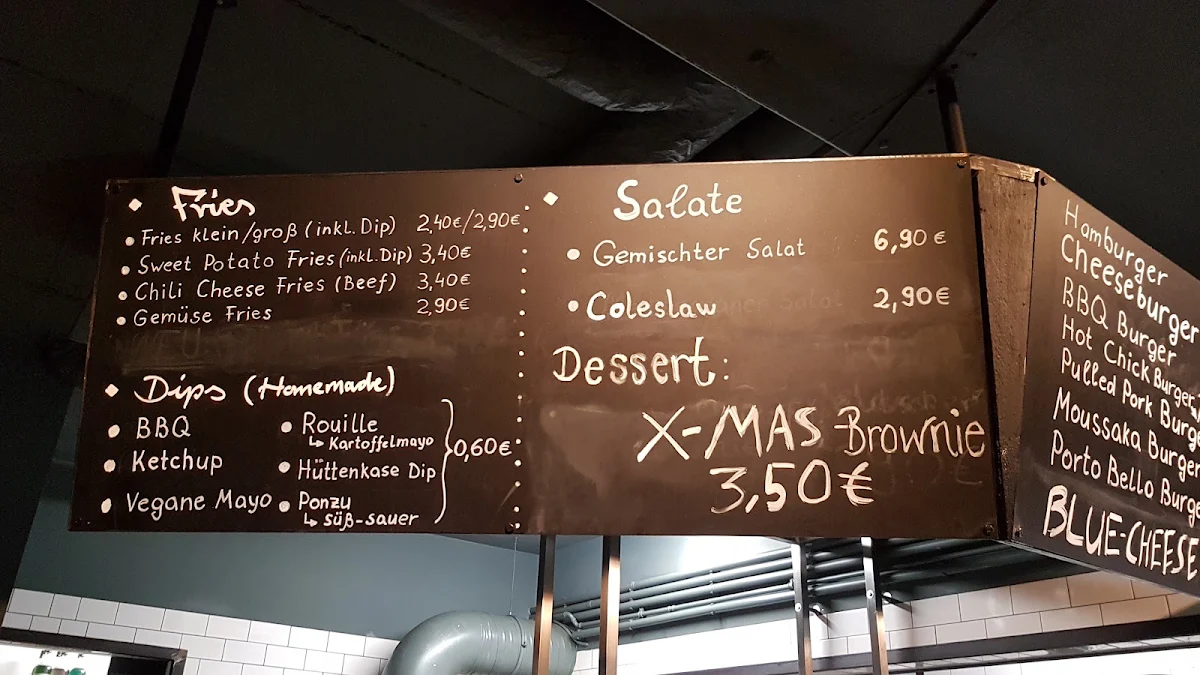 Fries
Fries klein/groß (inkl. Dip) 2,40€/2,90€
Sweet Potato Fries (inkl. Dip) 3,40€
Chili Cheese Fries (Beef) 3,40€
Gemüse Fries 2,90€
Dips (Homemade)
BBQ
Ketchup
Vegane Mayo
Rouille
↳ Kartoffelmayo
Hüttenkase Dip
Ponzu
↳ süß-sauer
0,60€
Salate
Gemischter Salat 6,90€
Coleslaw 2,90€
Dessert:
X-MAS Brownie
3,50€
Hamburger
Cheeseburger
BBQ Burger
Hot Chick Burger
Pulled Pork Burge
Moussaka Burger
Porto Bello Burge
BLUE-CHEESE